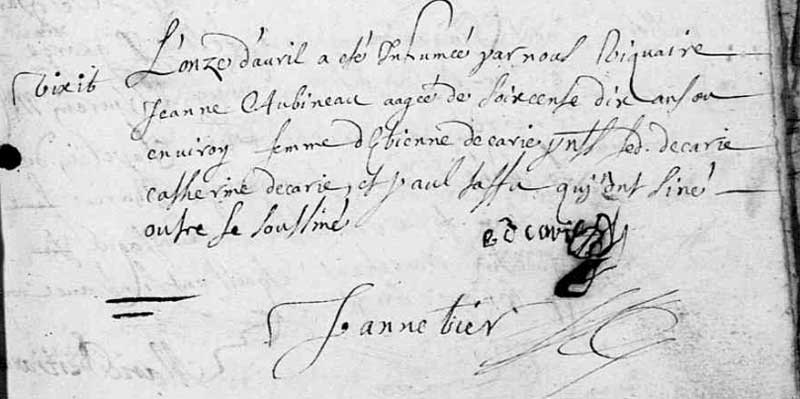 vixit
L'onze d'avril a eté Inhumée par nous Viquaire
Jeanne Aubineau aagée de soixcente dix ans ou
environ femme d'Etienne decarie pnts led. decarie
catherine decarie, et paul taffa qui ont siné
outre le soussiné
e decarie